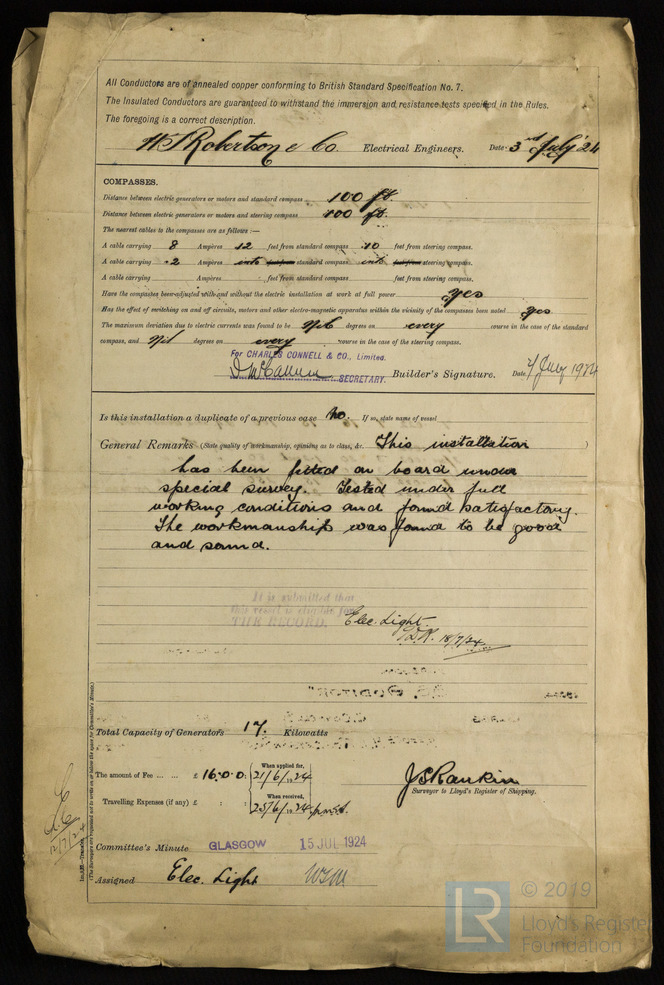 All Conductors are of annealed copper conforming to British Standard Specification No. 7.
The Insulated Conductors are guaranteed to withstand the immersion and resistance tests specified in the Rules.
The foregoing is a correct description.
Robertson & Co. Electrical Engineers. Date 3rd July '24
COMPASSES.
Distance between electric generators or motors and standard compass 100 ft.
Distance between electric generators or motors and steering compass 100 ft.
The nearest cables to the compasses are as follows:—
A cable carrying 8 Ampères 12 feet from standard compass 10 feet from steering compass.
A cable carrying .2 Ampères into feet from standard compass into feet from steering compass.
A cable carrying Ampères feet from standard compass feet from steering compass.
Have the compasses been adjusted with and without the electric installation at work at full power yes
Has the effect of switching on and off circuits, motors and other electro-magnetic apparatus within the vicinity of the compasses been noted yes
The maximum deviation due to electric currents was found to be Nil degrees on every course in the case of the standard
compass, and Nil degrees on every course in the case of the steering compass.
For CHARLES CONNELL & CO., Limited.
SECRETARY. Builder's Signature. Date July 1924
Is this installation a duplicate of a previous case No. If so, state name of vessel
General Remarks (State quality of workmanship, opinions as to class, &c. This installation )
has been fitted on board under
special survey. Tested under full
working conditions and found satisfactory.
The workmanship was found to be good
and sound.
It is submitted that
this vessel is eligible for
THE RECORD. Elec. Light.
18/7/24
Total Capacity of Generators 17. Kilowatts
The amount of Fee ... ... £ 16.0.0
When applied for, 21/6/24
Travelling Expenses (if any) £ : :
When received, 25/6/24
J S Rankin
Surveyor to Lloyd's Register of Shipping.
Committee's Minute GLASGOW 15 JUL 1924
Assigned Elec. Light
LR © 2019
Lloyd's Register
Foundation